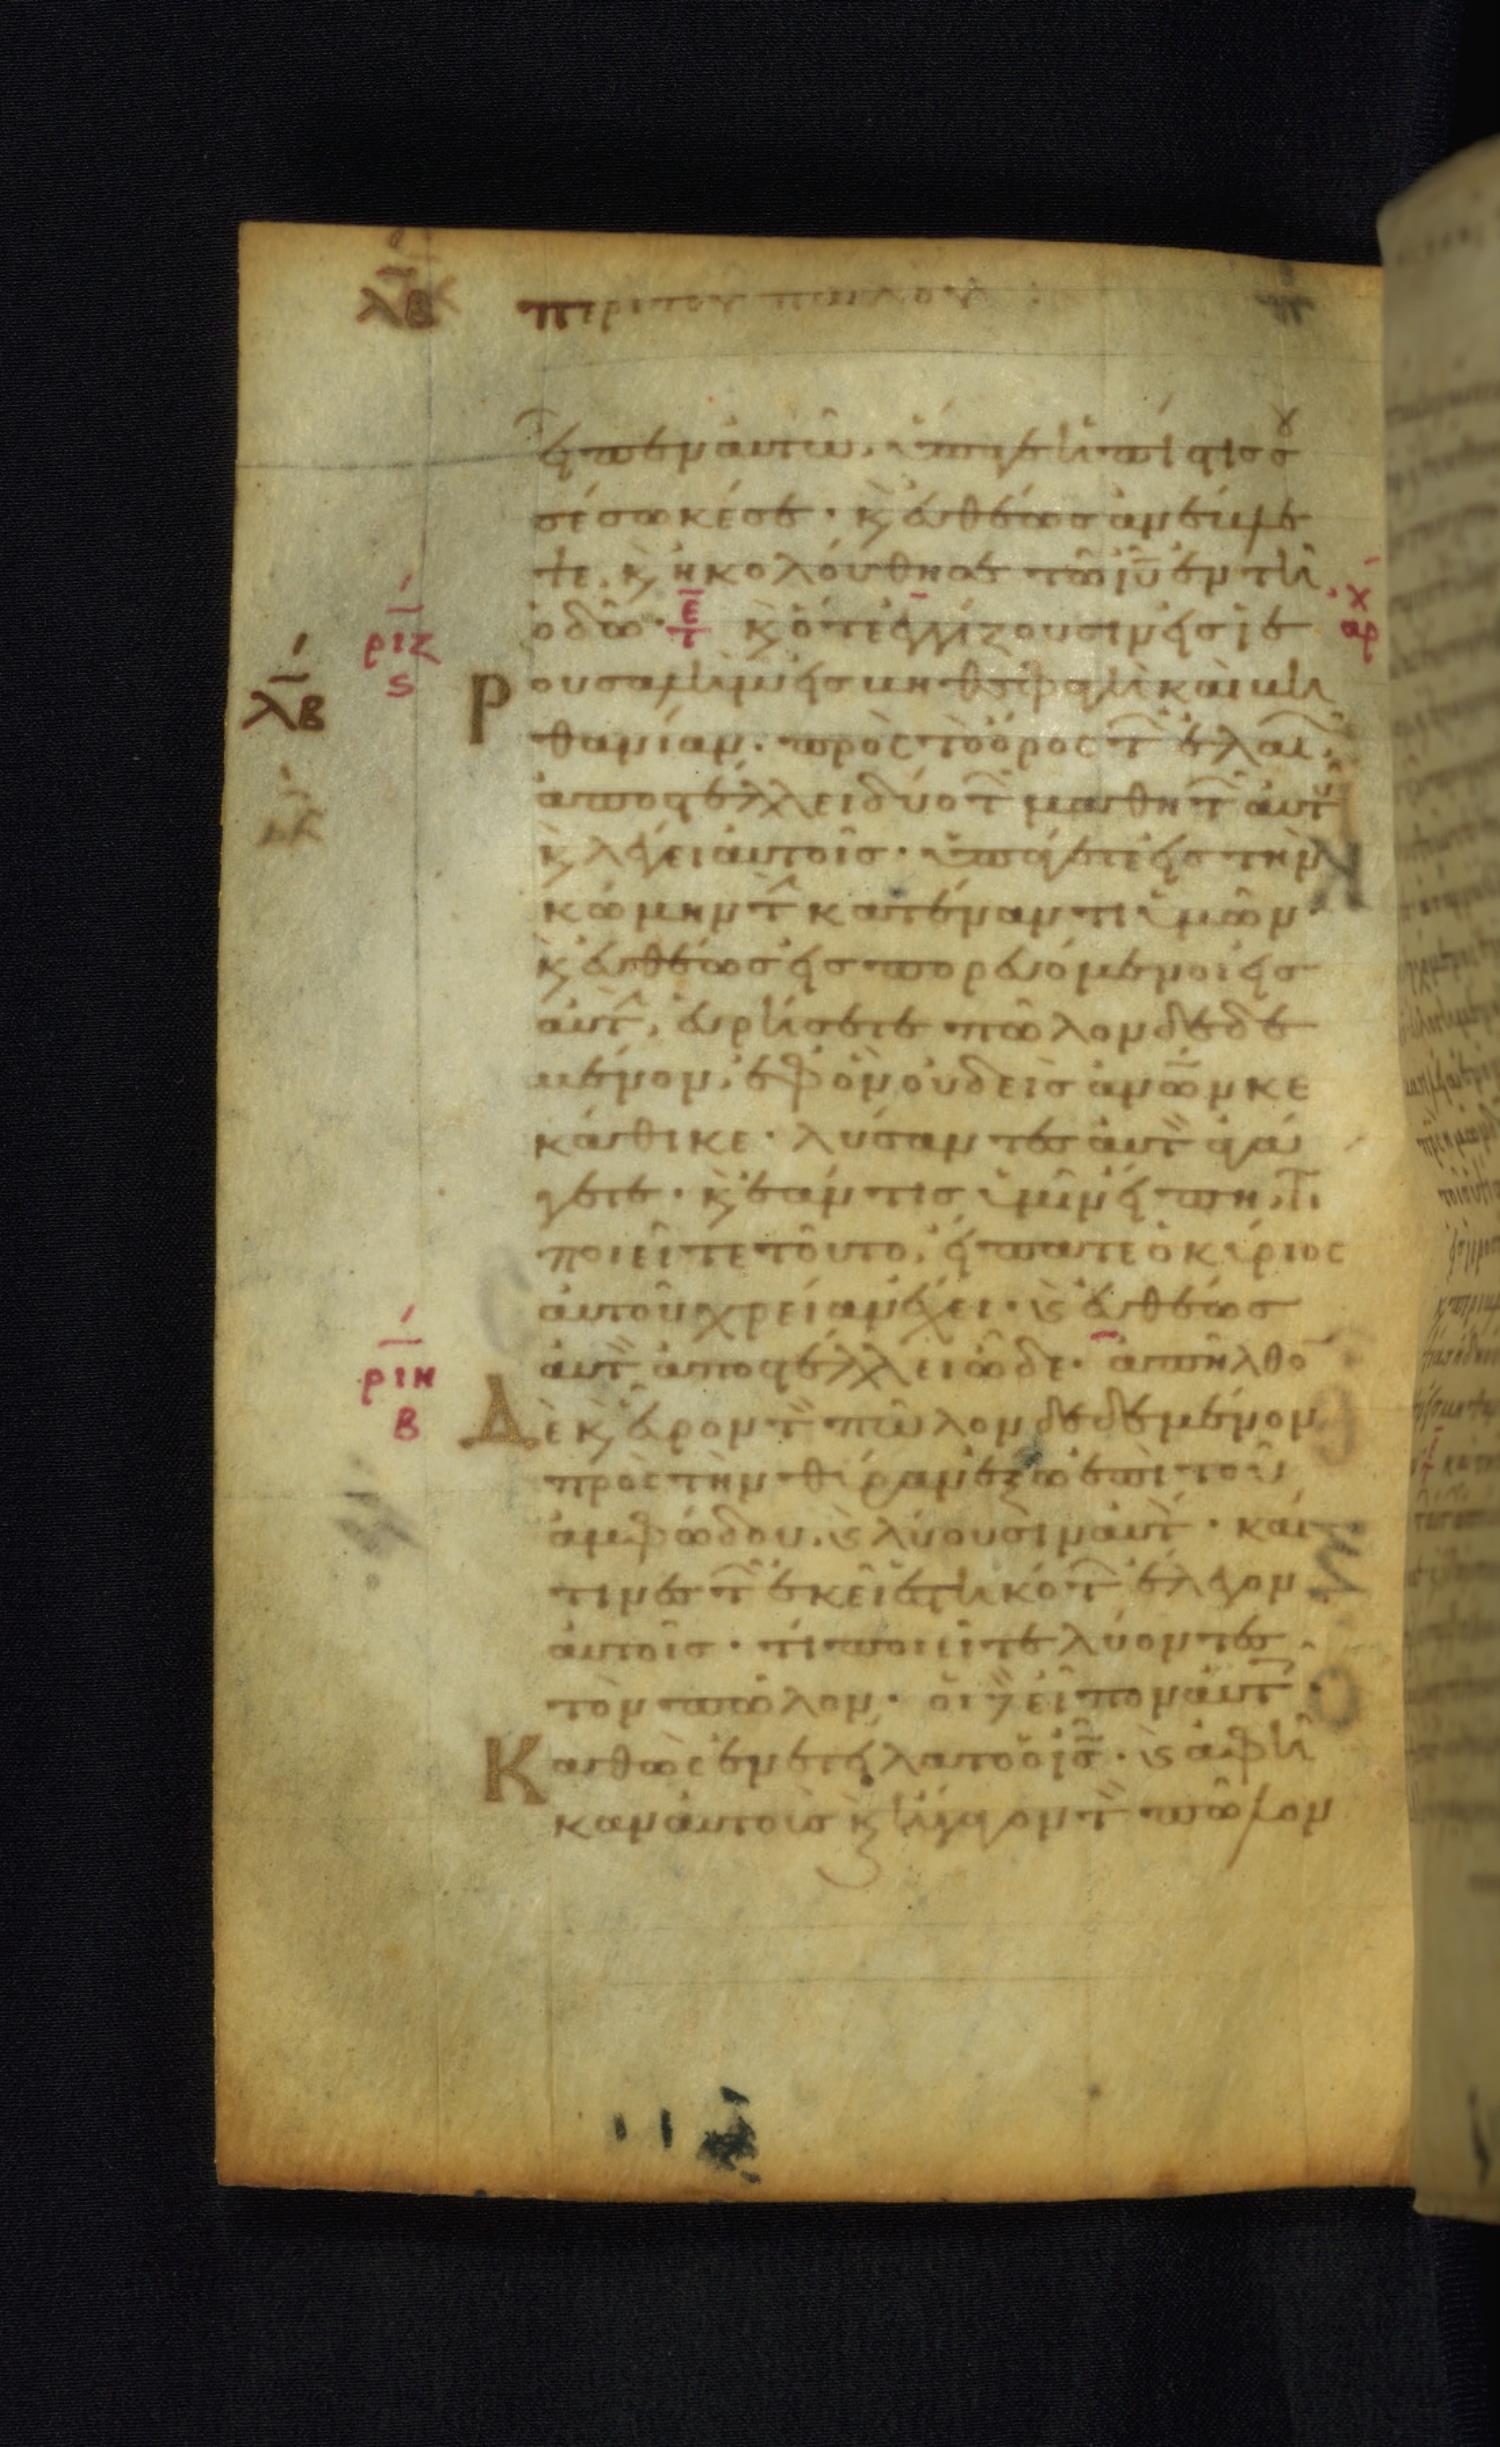 λβ περι του πωλου
εἶπεν αὐτῶ, ὕπαγε ἡ πίστις σου
σέσωκέ σε · κ̀ εὐθέως ἀνέβλε
ψε, κ̀ ἠκολούθησε τῶ ιῦ ἐν τῆ
ὁδῶ · ε̅τ κ̀ ὅτε ἐγγίζουσιν εἰς ἱε
ριζ ς χ αρ
λβ
ρουσαλὴμ εἰς βηθσφαγὴ καὶ βη
θανίαν · πρὸς τὸ ὄρος τ ἐλαι,
ἀποστέλλει δύο τ μαθητ αὐτ
κ̀ λέγει αὐτοῖς · ὑπάγετε εἰς τὴν
κώμην τ κατέναντι ὑμῶν ·
κ̀ εὐθέως εἰσπορευόμενοι εἰς
αὐτ, εὑρήσετε πῶλον δεδε
μένον, ἐφ' ὃν οὐδεὶς ἀνων κε
κάθικε · λύσαντες αὐτ ἀγά
γετε · κ̀ ἐάν τις ὑμῖν εἴπη, τί
ποιεῖτε τοῦτο, εἴπατε ὁ κύριος
αὐτοῦ χρείαν ἔχει · κ̀ εὐθέως
αὐτ ἀποστέλλει ὧδε · ἀπῆλθο
ριη β
Δὲ κ̀ εὗρον τ πῶλον δεδεμένον
πρὸς τὴν θύραν ἔξω ἐπὶ τοῦ
ἀμφόδου, κ̀ λύουσιν αὐτ · καί
τινες τ ἐκεῖ ἑστηκότ ἔλεγον
αὐτοῖς · τί ποιεῖτε λύοντες
τὸν πῶλον · οἱ δὲ εἶπον αὐτ ·
Καθὼς ἐνετείλατο ὁ ις · κ̀ ἀφῆ
καν αὐτοὺς κ̀ ἤγαγον τ πῶλον